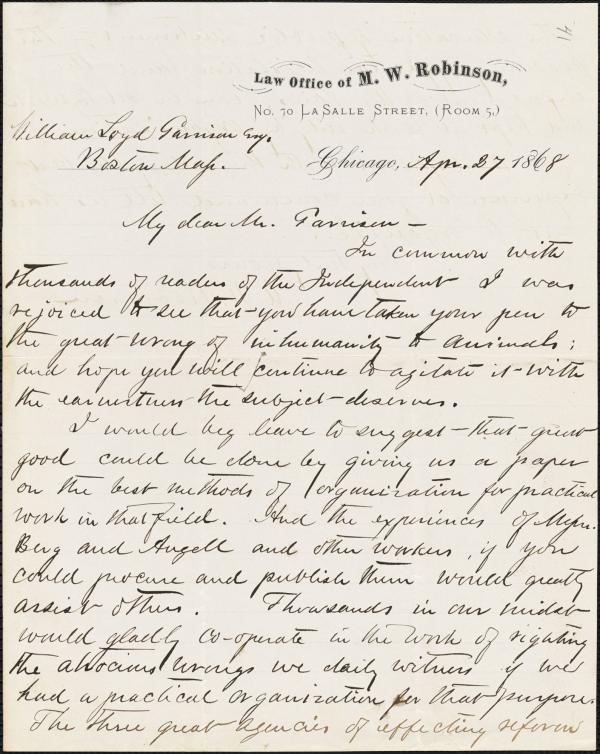 41
Law Office of M. W. Robinson,
No. 70 LaSalle Street, (Room 5,)
William Loyd Garrison Esq.
Boston Mass.
Chicago, Apr. 27 1868
My dear Mr. Garrison —
In common with
thousands of readers of the Independent I was
rejoiced to see that you have taken your pen to
the great wrong of inhumanity to animals;
and hope you will continue to agitate it with
the earnestness the subject deserves.
I would beg leave to suggest that great
good could be done by giving us a paper
on the best methods of organization for practical
work in that field. And the experiences of Messrs.
Berg and Angell and other workers, if you
could procure and publish them would greatly
assist others. Thousands in our midst
would gladly co-operate in the work of righting
the atrocious wrongs we daily witness if we
had a practical organization for that purpose.
The three great agencies of effecting reform